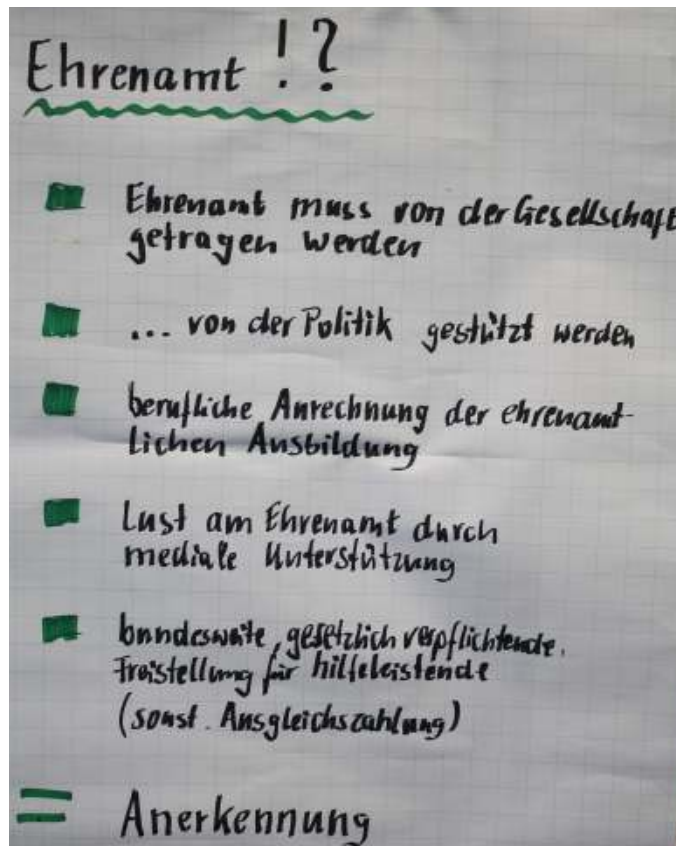 Ehrenamt !?
Ehrenamt muss von der Gesellschaft
getragen werden
... von der Politik gestützt werden
berufliche Anrechnung der ehrenamt-
lichen Ausbildung
Lust am Ehrenamt durch
mediale Unterstützung
bundesweite, gesetzlich verpflichtende
Freistellung für hilfeleistende
(sonst. Ausgleichszahlung)
= Anerkennung